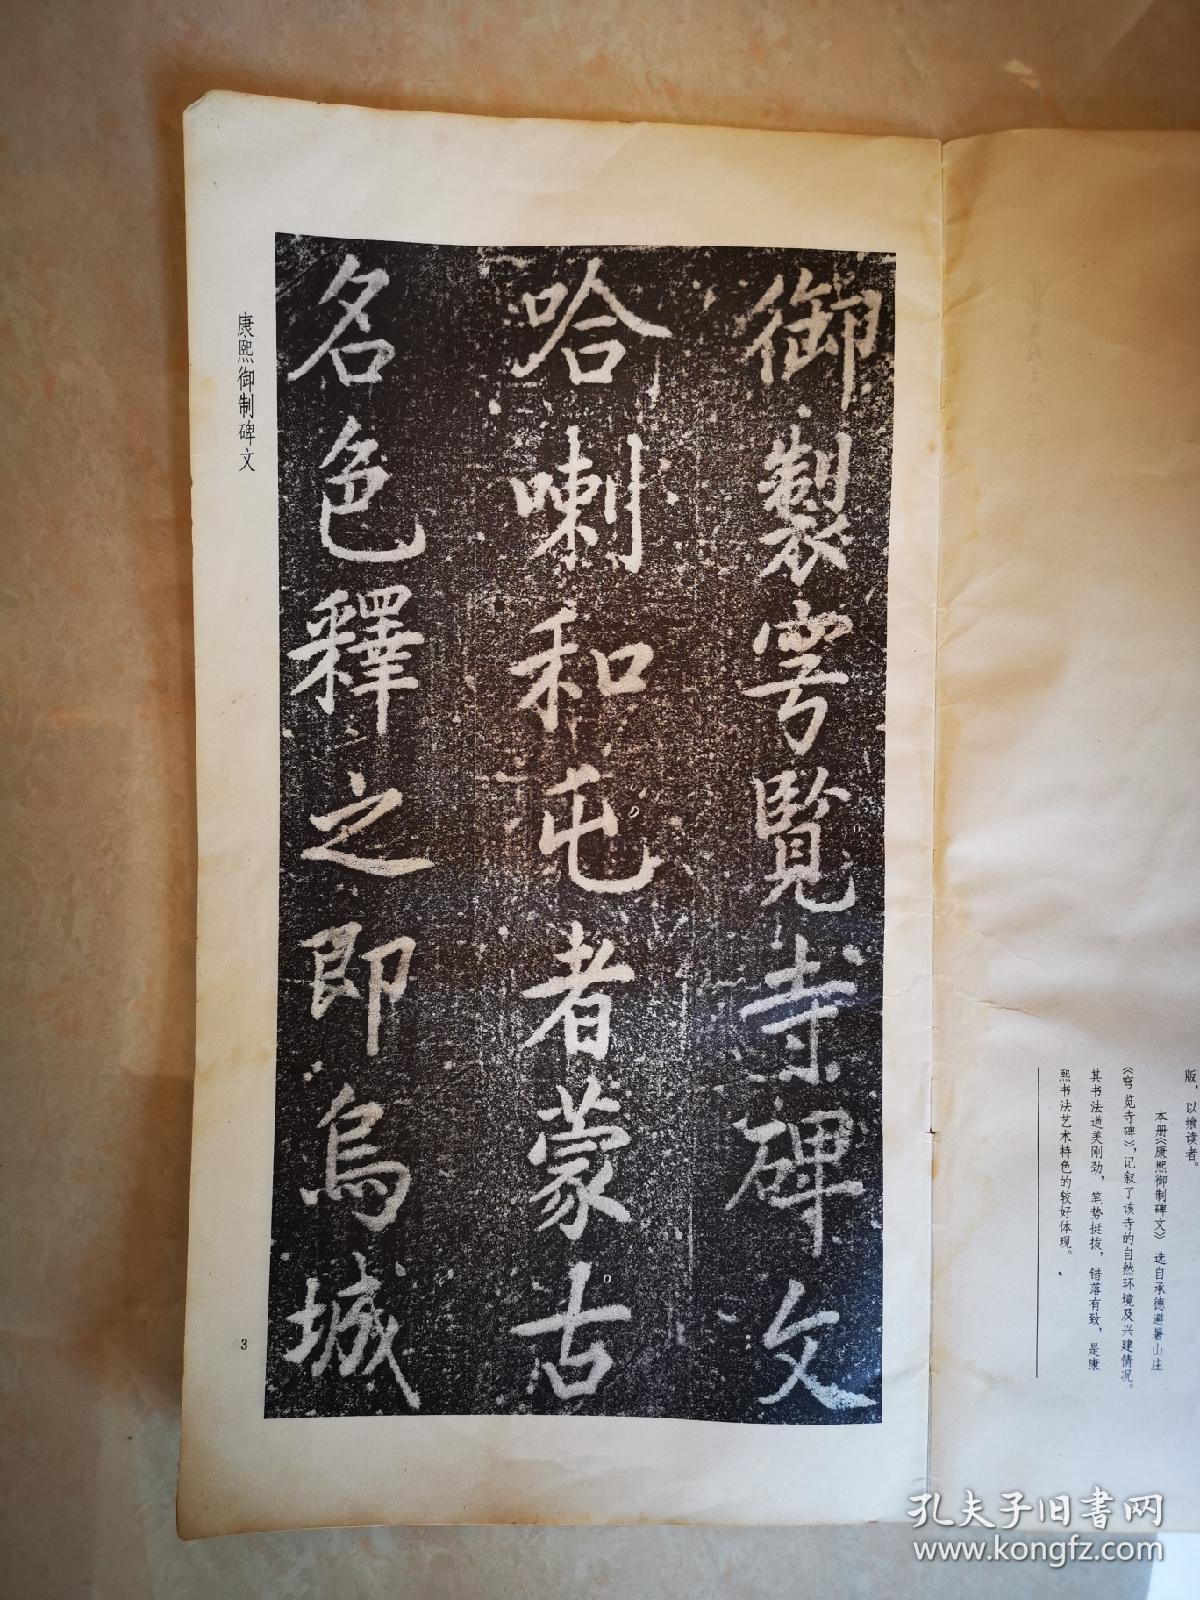 版，以飨读者。
本册《康熙御制碑文》选自承德避暑山庄
《穹览寺碑》，记叙了该寺的自然环境及兴建情况。
其书法遒美刚劲，笔势挺拔，错落有致，是康
熙书法艺术特色的较好体现。
御製穹覽寺碑文
哈喇和屯者蒙古
名色釋之即烏城
康熙御制碑文
3
孔夫子旧书网
www.kongfz.com